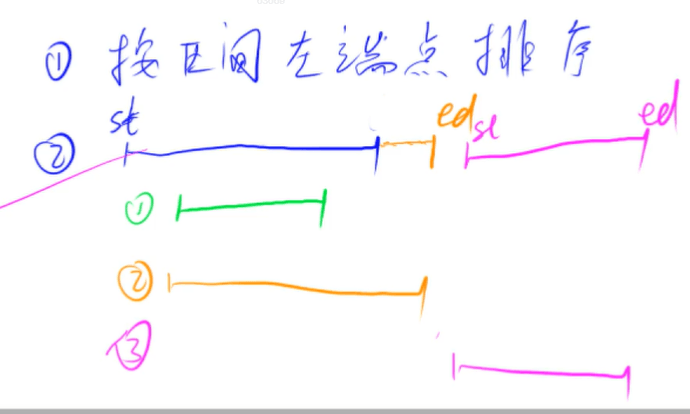 ① 按区间左端点排序
st ed st ed
②
①
②
③